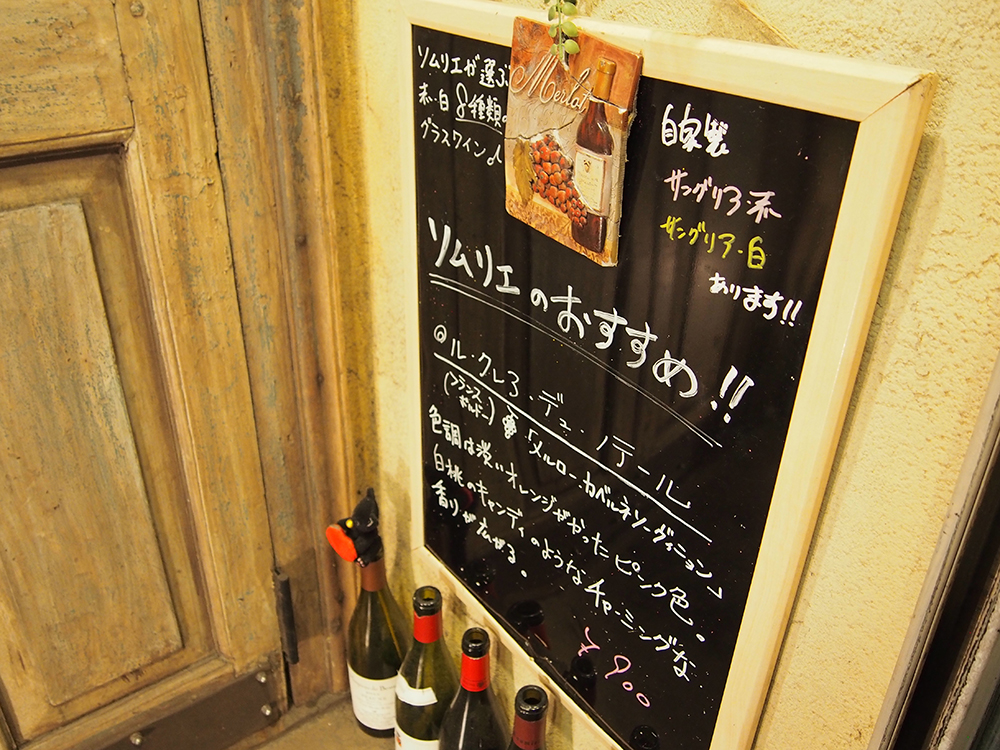 ソムリエが選ぶ
赤・白8種類の
グラスワイン♪
Merlot
自家製
サングリア赤
サングリア・白
あります!!
ソムリエのおすすめ!!
◎ル・クレヨ・デュ・ノテール
(フランス ボルドー)
メルロー・カベルネソーヴィニョン
色調は淡いオレンジがかったピンク色。
白桃のキャンディのようなチャーミングな
香りが広がる。
¥900